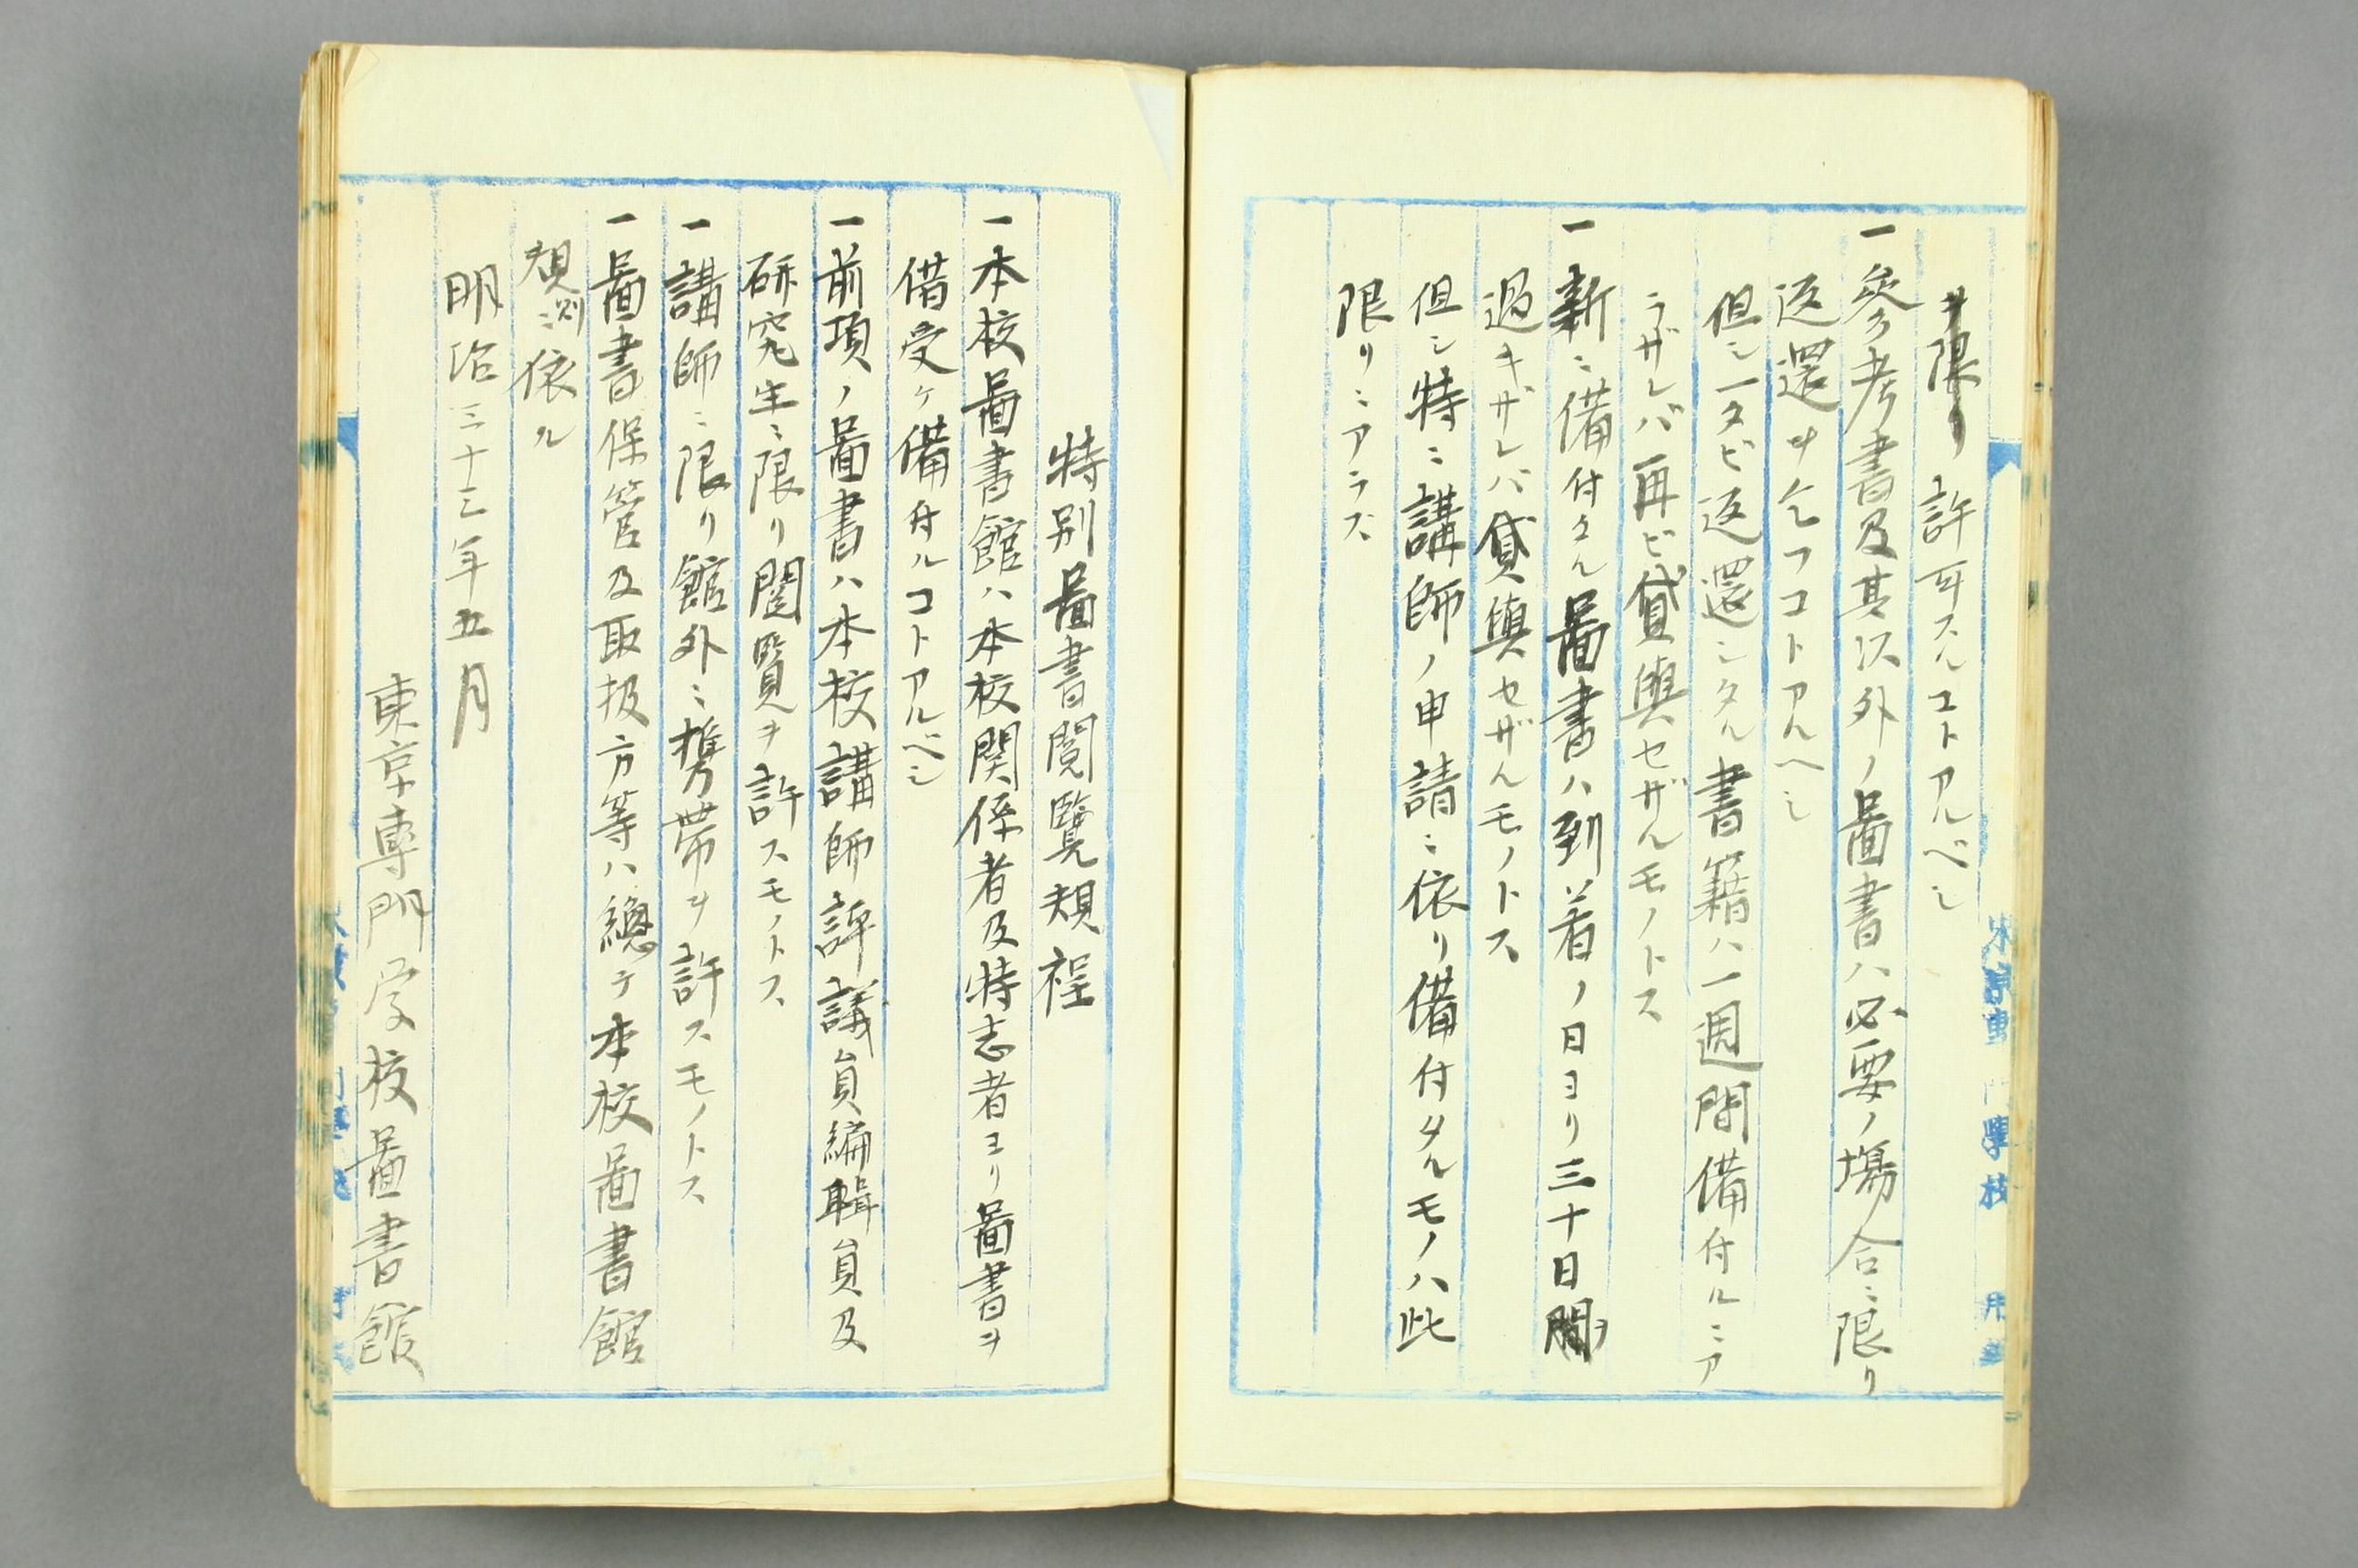 ヲ限リ許可スルコトアルベシ
一參考書及其以外ノ圖書ハ必要ノ塲合ニ限リ
返還ヲ乞フコトアルヘシ
但シ一タビ返還シタル書籍ハ一週間備付ルニア
ラザレバ再ビ貸與セザルモノトス
一新ニ備付タル圖書ハ到着ノ日ヨリ三十日間ヲ
過キザレバ貸與セザルモノトス
但シ特ニ講師ノ申請ニ依リ備付タルモノハ此
限リニアラズ
特别圖書閲覽規程
一本校圖書館ハ本校関係者及特志者ヨリ圖書ヲ
借受ケ備付ルコトアルベシ
一前項ノ圖書ハ本校講師評議員編輯員及
研究生ニ限リ閲覧ヲ許スモノトス
一講師ニ限リ館外ニ携帶ヲ許スモノトス
一圖書保管及取扱方等ハ總テ本校圖書館
規則ニ依ル
明治三十三年五月
東京專門学校圖書館